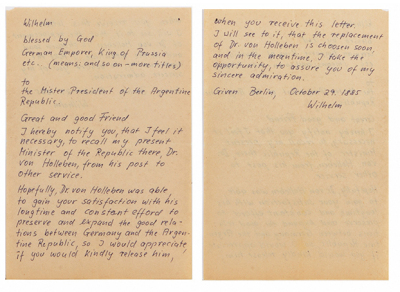 Wilhelm
blessed by God
German Emporer, King of Prussia
etc. (means: and so on - more titles)
to
the Mister President of the Argentine
Republic.
Great and good Friend
I hereby notify you, that I feel it
necessary, to recall my present
Minister of the Republic there, Dr.
von Holleben, from his post to
other service.
Hopefully, Dr. von Holleben was able,
to gain your satisfaction with his
longtime and constant efford to
preserve and expand the good rela-
tions between Germany and the Argen-
tine Republic, so I would appreciate
if you would kindly release him,
when you receive this letter.
I will see to it, that the replacement
of Dr. von Holleben is choosen soon,
and in the meantime, I take the
opportunity, to assure you of my
sincere admiration.
Given Berlin, October 29. 1885
Wilhelm